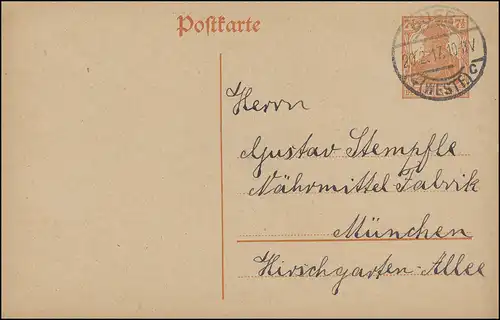 Postkarte
7½
BUER
20.2.17.10-11V
(WESTF)
Herrn
Gustav Stempfle
Nährmittel Fabrik
München
Hirschgarten-Allee